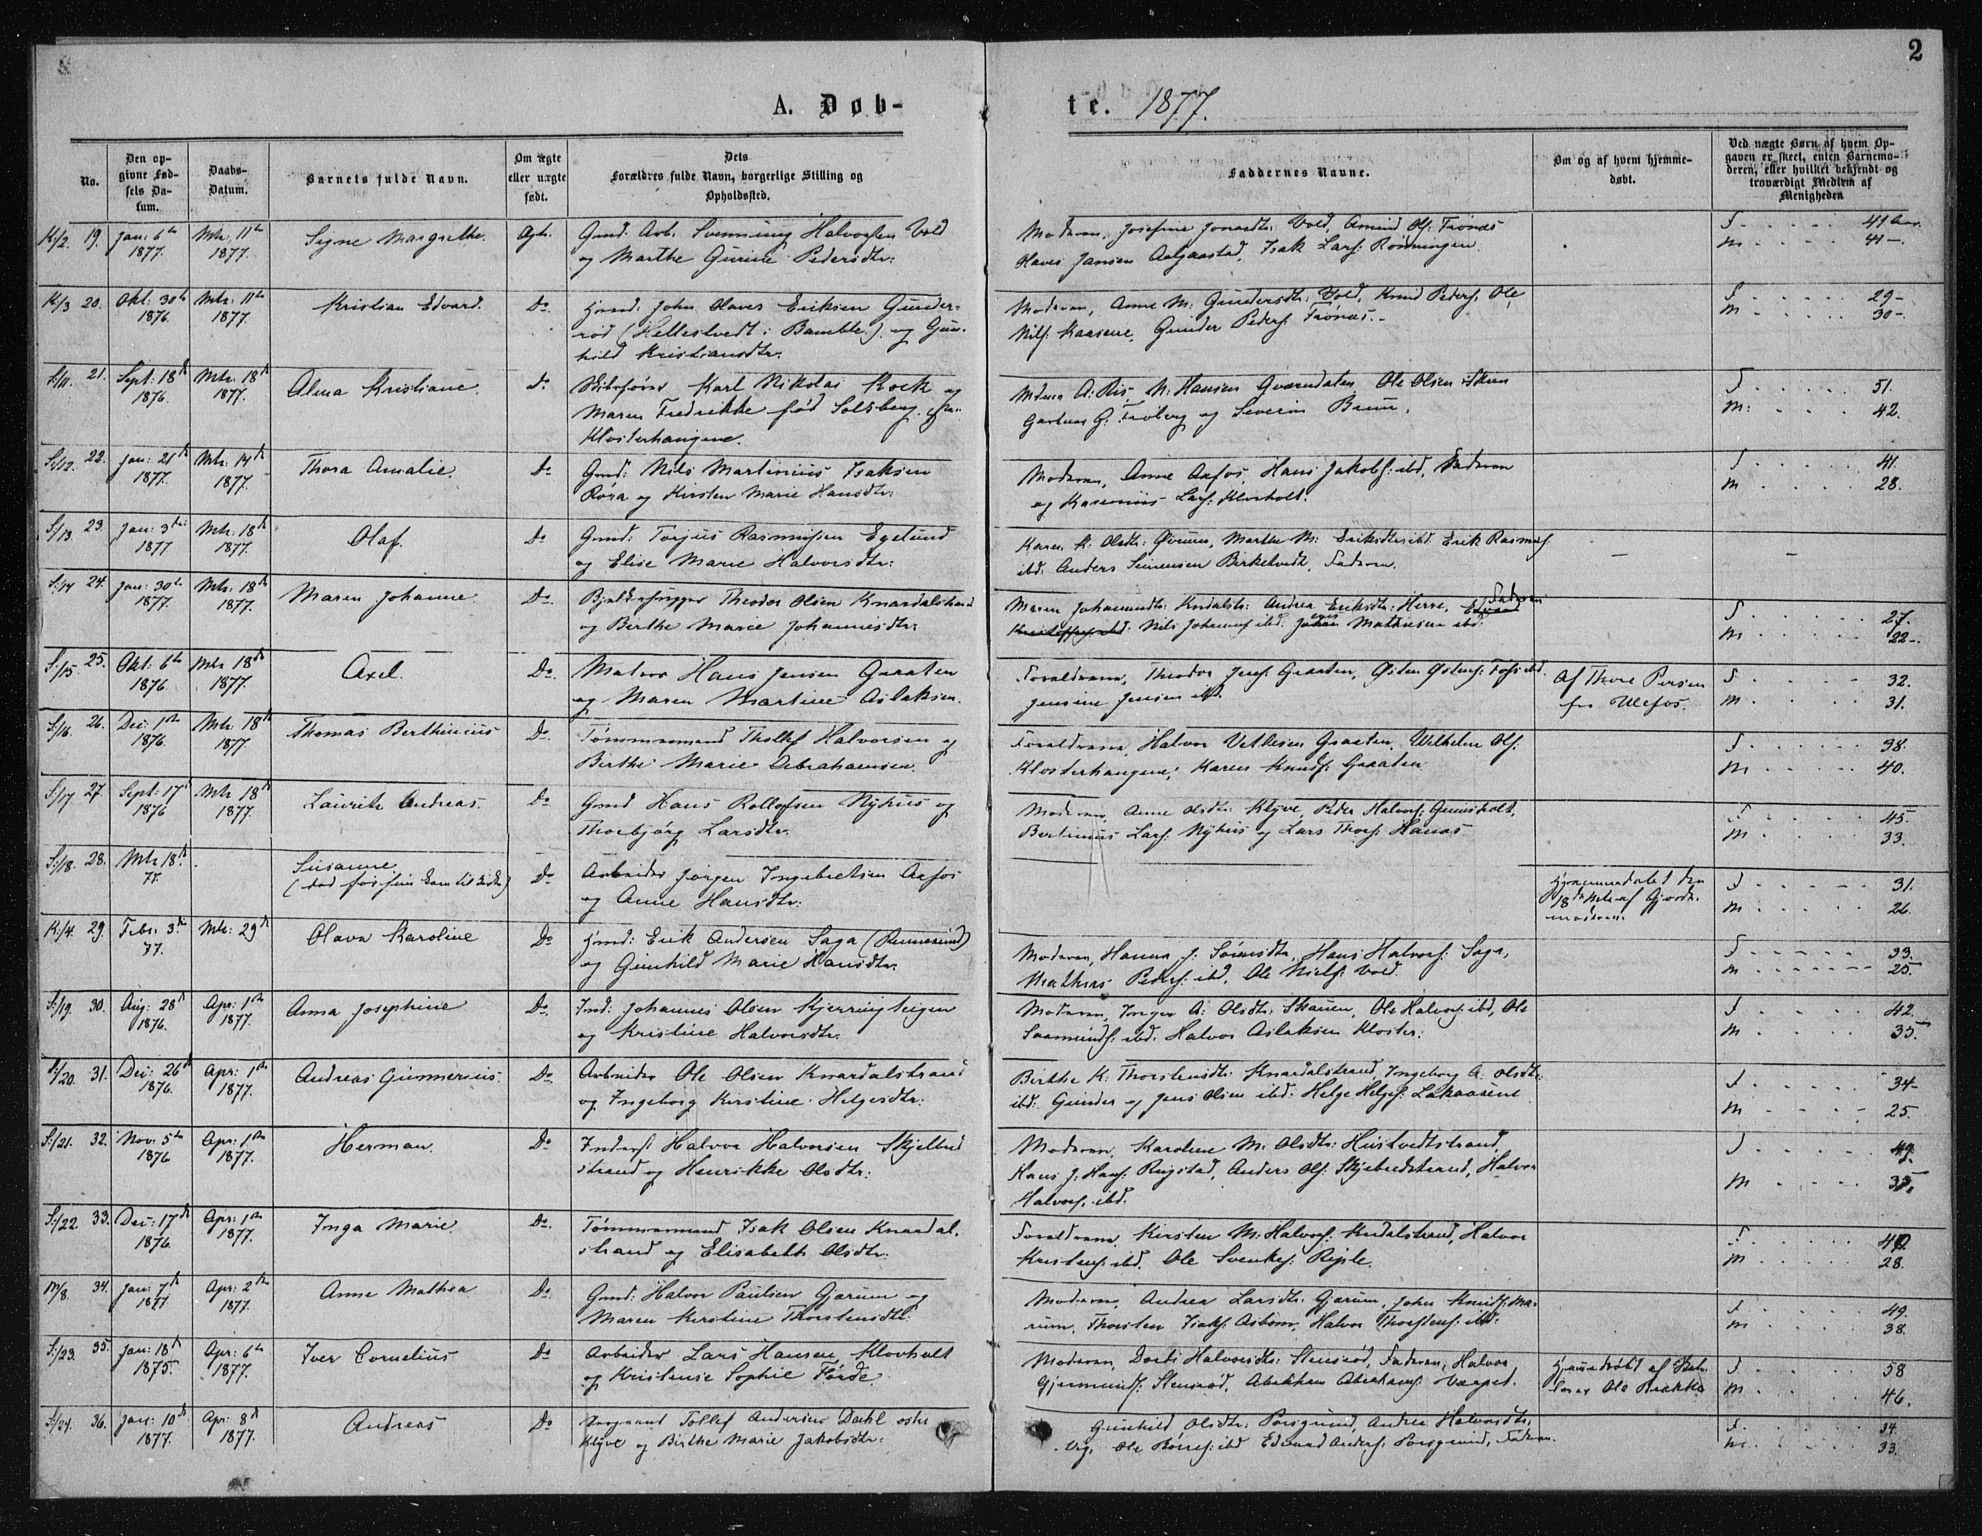 2
A. Døb-
te. 1877.
No.
Den op-
givne Fød-
sels Da-
tum.
Daabs-
Datum.
Barnets fulde Navn.
Om ægte
eller uægte
født.
Dets
Forældres fulde Navn, borgerlige Stilling og
Opholdssted.
Faddernes Navne.
Om og af hvem hjemme-
døbt.
Ved uægte Børn af hvem Op-
gaven er skeet, enten Barnemo-
deren, eller hvilket bekjendt og
troværdigt Medlem af
Menigheden
K/2. 19. Jan: 6te 1877. Mts: 11te 1877. Signe Margrethe. Ægte. Gmd. Arb. Svenning Halvorsen Vold
og Marthe Gurine Pedersdtr:
Moderen, Josefine Jonasdtr: Vold, Amund Ols: Trönæs
Hans Jansen Aalgaastad, Isak Lars: Rönningen.
F. 41 aar.
M. 41 —.
K/3 20. Okt: 30te 1876. Mts: 11te 1877. Kristian Edvard. Do. Gmd: John Olaves Eriksen Gunder-
rod (Hellestvedt i Bamble.) og Gun-
hild Kristiansdtr.
Moderen, Anne M. Gundersdtr: Vold, Knud Peders: Ole
Nils: Kaasene, Gunder Peders: Trönæs.
F. 29 -
M. 30 -.
S/11. 21. Sept: 18de 1876. Mts: 18de 1877. Alma Kristiane. Do. Skibsförer Karl Nikolai Kock og
Maren Fredrikke fød Solberg fra
Klosterhaugene.
Mdme A. Riis, N. Hansen Gværndalen Ole Olsen Skien
Gartner G. Froberg og Severin Bruun.
F. 51.
M. 42.
S/12. 22. Jan: 21de 1877. Mts: 14de 1877. Thora Amalie. Do. Gmd: Nils Martinius Isaksen
Röra og Kirsten Marie Hansdtr:
Moderen, Anne Aafos, Hans Jakobs: ibd, Faderen
og Karenius Lars: Klovholt.
F. 41.
M. 28.
S/13. 23. Jan: 3die 1877 Mts: 18de 1877. Olaf. Do. Gmd: Torjus Rasmussen Egelund
og Elise Marie Halvorsdtr:
Karen K. Olsdtr: Övrum, Marthe M: Eriksdtr: ibd: Erik Rasmus:
ibd: Anders Simensen Birketvedt, Faderen.
S/14 24. Jan: 30te 1877. Mts: 18de 1877. Maren Johanne Do. Theodor Olsen Knardalstrand
og Berthe Marie Johannesdtr:
Maren Johannesdtr: Kndalstr: Andrea Eriksdtr: Herre, Faderen
ibd: Nils Johannes: ibd. Mathisen ibd.
F. 27.
M. 22 -.
S/15 25. Okt: 6te 1876. Mts 18de 1877. Axel. Do. Matros Hans Jensen Graaten
og Maren Martine Aslaksen.
Forældrene, Theodor Jens: Graaten, Østen Østens: Fossibd.
Jensine Jensen ibd.
Af Thore Persen
fra Ulefos.
F. 32.
M. 31.
S/16. 26. Dec: 1ste 1876. Mts: 18de 1877. Thomas Berthinius Do. Tömmermand Thollef Halvorsen og
Berthe Marie Abrahamsen.
Forældrene, Halvor Vetlesen Graaten, Wilhelm Ols:
Klosterhaugene, Karen Knuds: Graaten
F. 38.
M. 40.
S/17 27. Sept: 17de 1876 Mts 18de 1877. Lauritz Andreas. Do Gmd Hans Rollefsen Nyhus og
Thorbjörg Larsdtr.
Moderen, Anne Olsdtr: Klyve, Peder Halvors: Gunnsholt,
Bertinius Lars: Nyhus og Lars Thors: Hanås
F. 45.
M. 33.
S/18. 28. Mts 18de 77. Susanne
(död för hun kom til kirke) Do Arbeider Jörgen Ingebretsen Aafos
og Anne Hansdtr:
Hjemmedöbt den
18de Mts af Gjorde-
moderen.
F. 31.
M. 26.
K/4. 29. Febr: 3die 77. Mts: 29de Olava Karoline Do Gmd: Erik Andersen Saga
og Gunhild Marie Hansdtr.
Moderen, Hanna J. Sörensdtr, Hans Halvors: Saga,
Mathias Peders: ibd, Ole Niels: Vold.
F. 33.
M. 25.
S/19. 30. Aug: 28de 1876. Apr: 1ste 1877. Anna Josephine Do. Ind: Johannes Olsen Kjerringteigen
og Kristine Halvorsdtr.
Moderen, Inger A. Olsdtr: Skauen, Ole Halvors: ibd, Ole
Saamunds: ibd. Halvor Aslaksen Kloster.
F. 42.
M. 35.
S/20. 31. Dec: 26de 1876. Apr: 1ste 1877. Andreas Gunnerius. Do Arbeider Ole Olsen Knardalstrand
og Ingeborg Kirstine Helgesdtr:
Berthe K. Thorstensdtr: Knardalstrand, Ingeborg A. Olsdtr:
ibd: Gunder og Jens Olsen ibd: Helge Helges: Lakaasene
F. 34 -
M. 25
S/21. 32. Nov: 5te 1876 Apr: 1ste 1877. Herman. Do Inderst Halvor Halvorsen Skjelbred
strand og Henrikke Olsdtr:
Moderen, Karoline M. Olsdtr: Hustvedtstrand,
Hans J. Hans: Rugstad, Anders Ols: Skjelbredstrand, Halvor
Halvors: ibd.
F. 49.
M. 35.
S/22. 33. Dec: 17de 1876. Apr: 1ste 1877. Inga Marie. Do. Tömmermand Isak Olsen Knardal-
strand og Elisabeth Olsdtr:
Forældrene, Kirsten M. Halvors: Kndalstrand, Halvor
Kristens: ibd. Ole Svenkes: Rijse.
F. 40.
M. 28.
M/8. 34. Jan: 7de 1877 Apr: 2den 1877. Anne Mathea Do. Gmd: Halvor Paulsen Gjerum og
Maren Kirstine Thorstensdtr.
Moderen, Andrea Larsdtr: Gjerum, John Knuds: Mæ-
rum, Thorsten Isaks: Asbom, Halvor Thorstens: ibd.
F. 49.
M. 38.
S/23. 35. Jan: 18de 1875. Apr: 6te 1877. Iver Cornelius Do Arbeider Lars Hansen Klovholt
og Kristense Sophie Förde.
Moderen, Dorthe Halvorsdtr: Stensrød, Faderen, Halvor
Gjermunds: Stensrød, Abraham Abrahams: Værpet.
Hjemmedöbt af
Ole Brække
F. 58
M. 46.
S/24. 36. Jan: 10de 1877. Apr: 8de 1877. Andreas Do Tollef Andersen Dahl östre
Klyve og Birthe Marie Jakobsdtr.
Gunhild Olsdtr: Porsgrund, Andrea Halvorsdtr:
Vig, Ole Börres: ibd Edvard Anders: Porsgrund, Faderen.
F. 34.
M. 33.